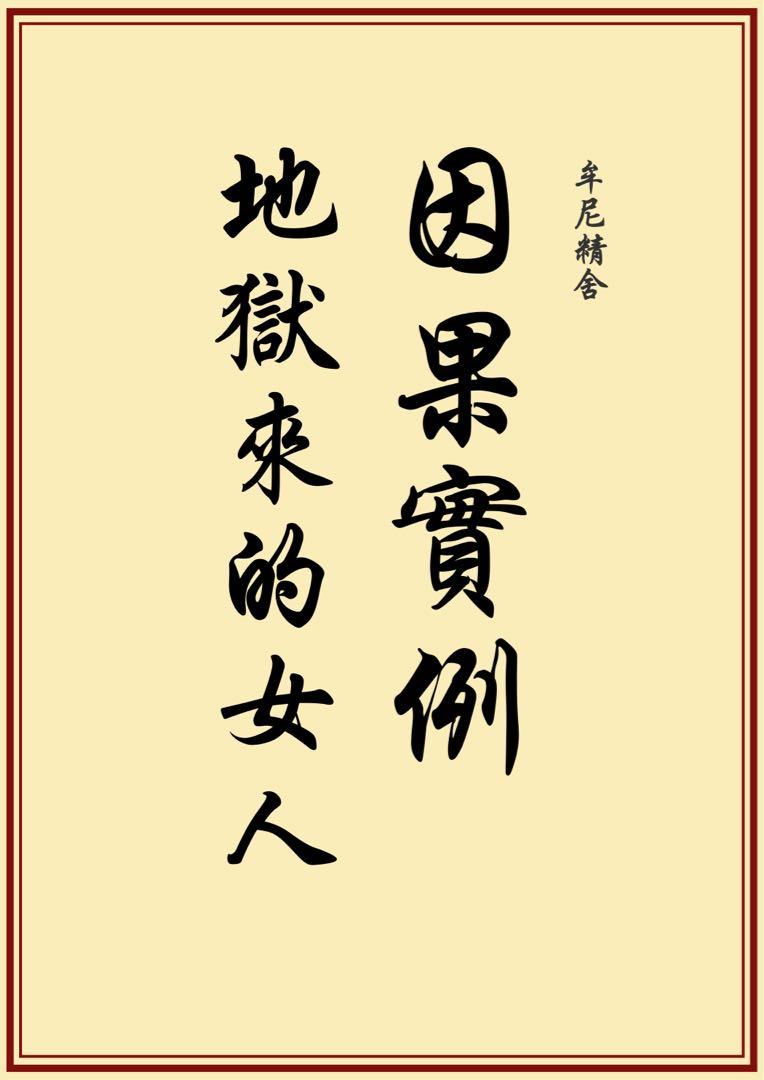 牟尼精舍
因果實例
地獄來的女人